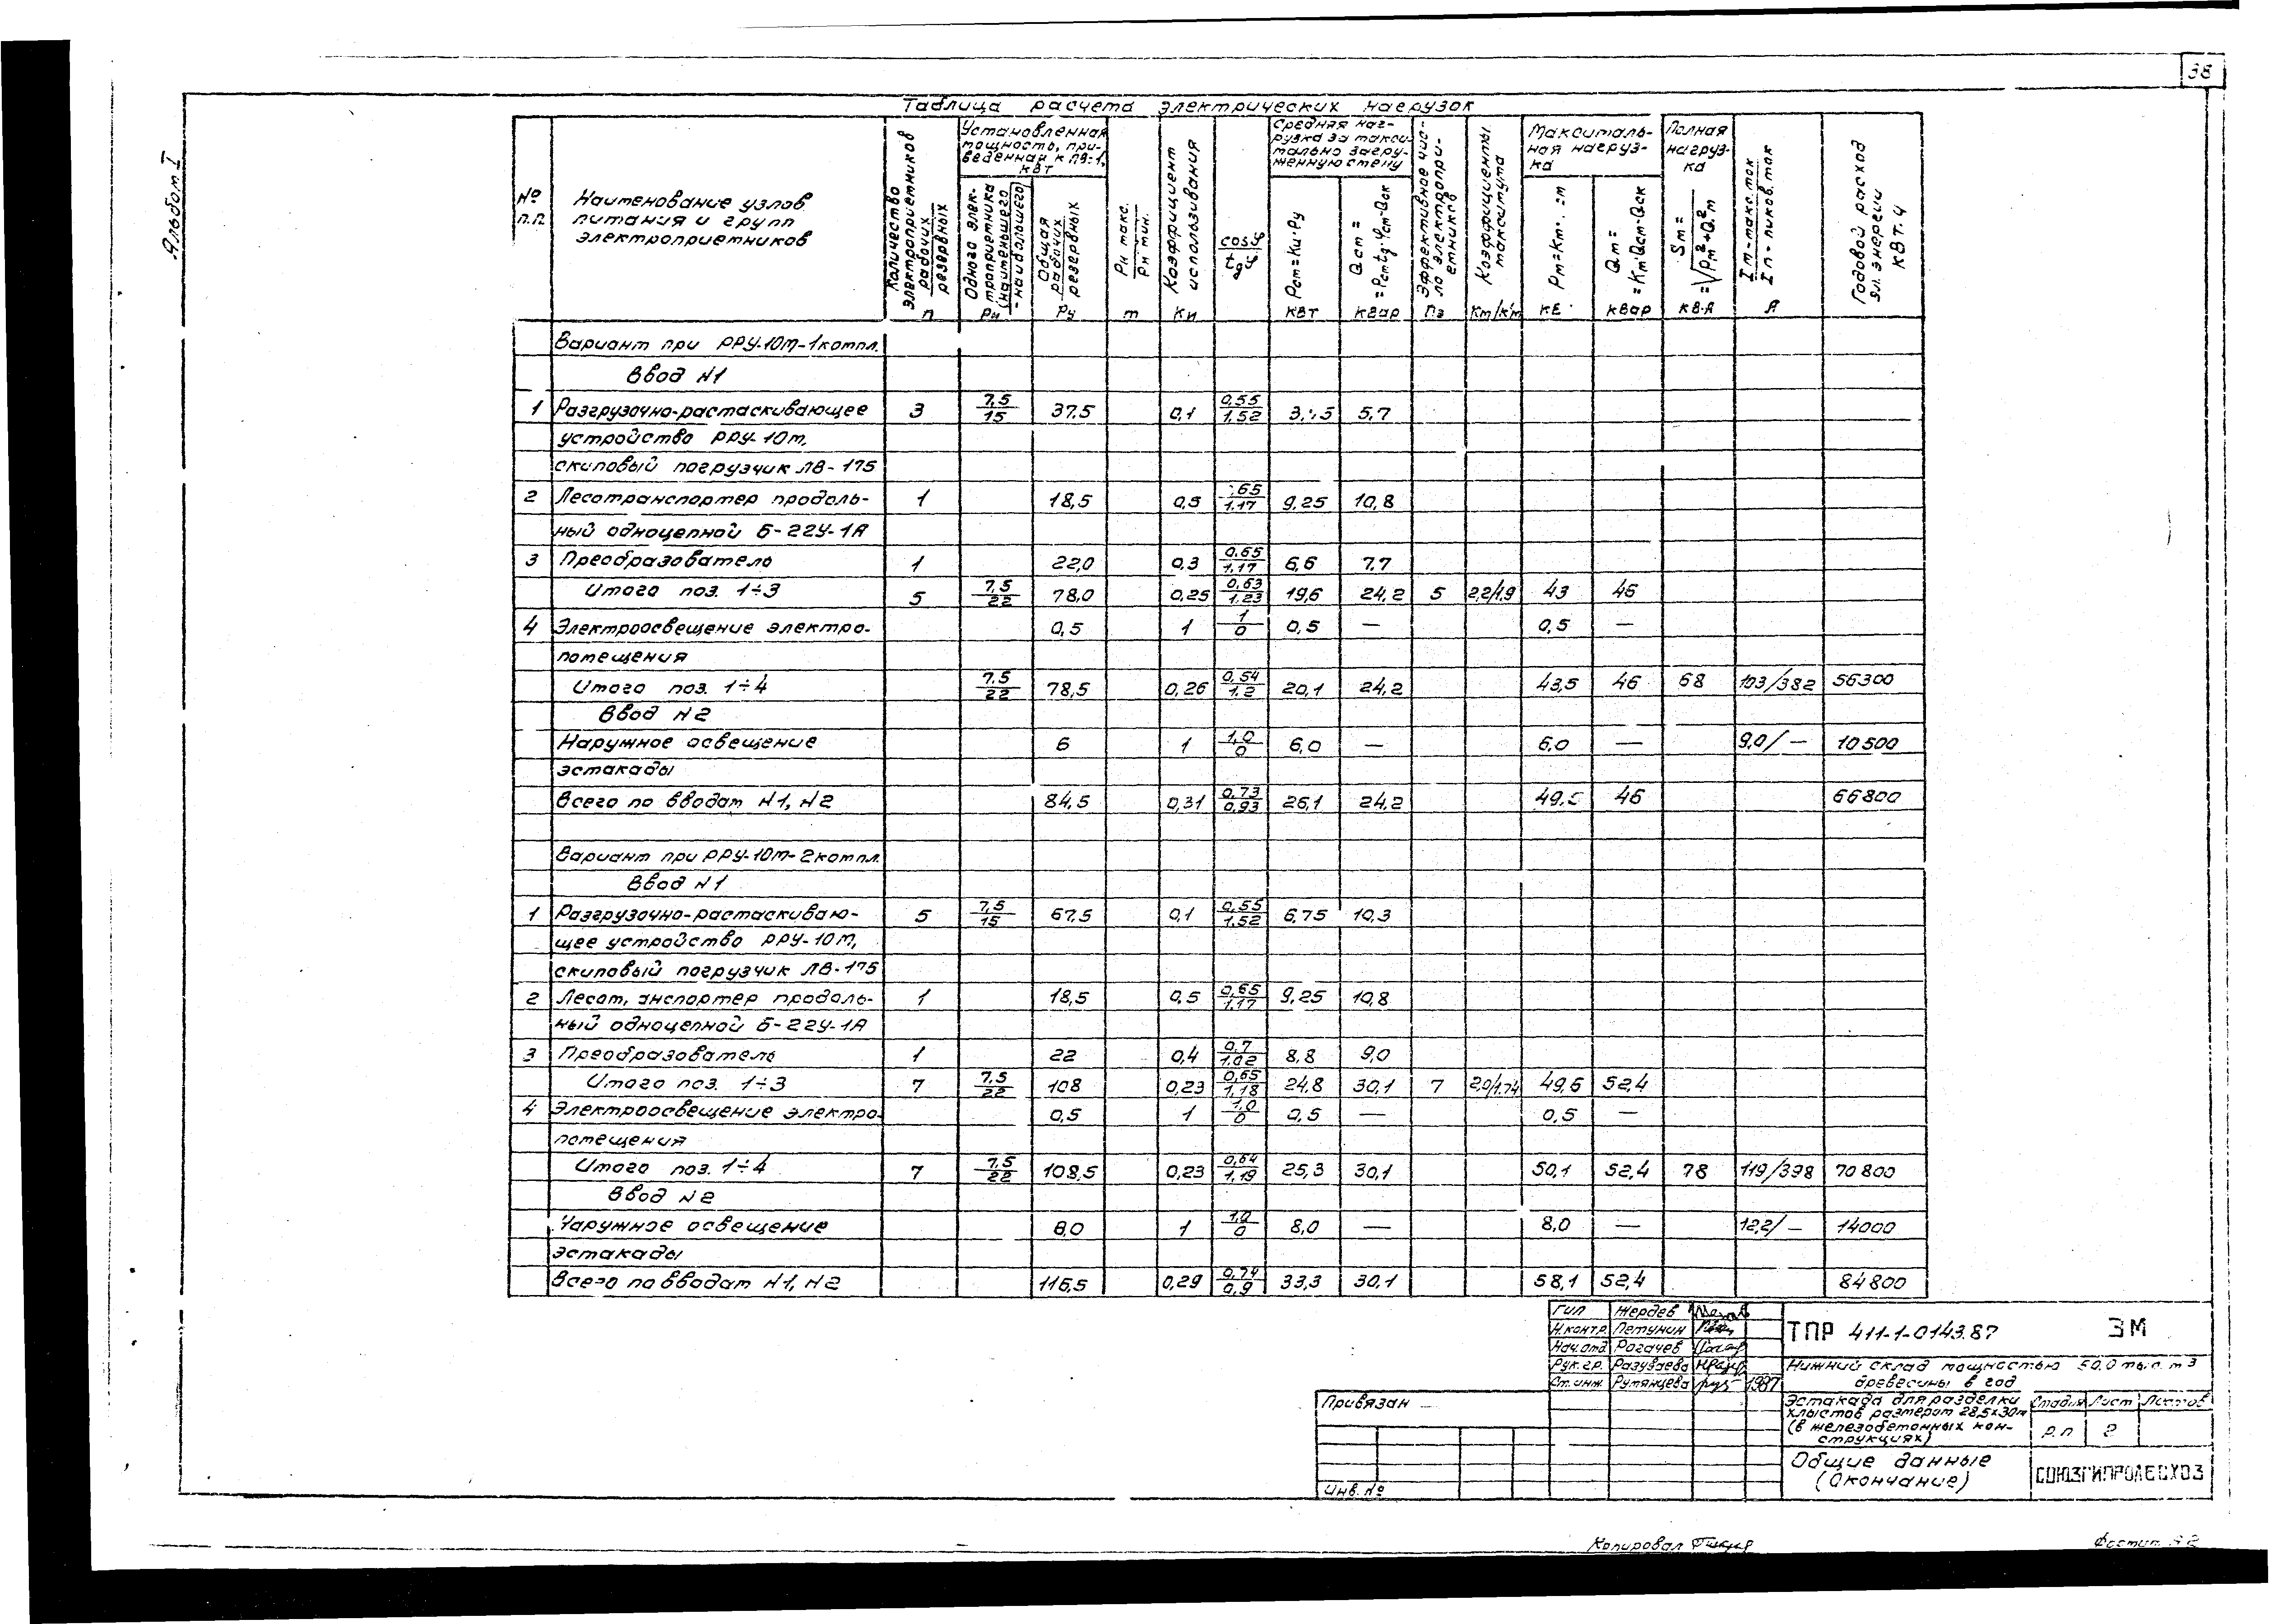 38
Альбом I
Таблица расчета электрических нагрузок
№ п.п.
Наименование узлов питания и групп электроприемников
Количество электроприемников рабочих резервных n
Установленная мощность, приведенная к ПВ=1, кВт
Одного электроприемника (наименьшего -наибольшего) Рн
Общая рабочих резервных Ру
Рн макс. Рн мин. m
Коэффициент использования Ки
cosφ tgφ
Средняя нагрузка за максимально загруженную смену
Рсм=Ки·Ру кВт
Qсм= квар
Эффективное число электроприемников Пэ
Коэффициенты максимума Км/к'м
Максимальная нагрузка
Рм=Км·
Qм= =Км·Qсм·Qок квар
Полная нагрузка Sм= =√Рм²+Qм² кВ·А
Iм-макс.ток Iп=пиков.ток А
Годовой расход эл.энергии кВт.ч
Вариант при РРУ-10м-1компл.
Ввод N1
1 Разгрузочно-растаскивающее 3 7,5/15 37,5 0,1 0,55/1,52 5,7
устройство РРУ-10м,
скиповый погрузчик ЛВ-175
2 Лесотранспортер продоль- 1 18,5 0,5 65/1,17 9,25 10,8
ный одноцепной Б-22У-1А
3 Преобразователь 1 22,0 0,3 0,65/1,17 6,6 7,7
Итого поз. 1÷3 5 7,5/22 78,0 0,25 0,63/1,23 19,6 24,2 5 2,2/1,9 43 46
4 Электроосвещение электро- 0,5 1 1/0 0,5 — 0,5 —
помещения
Итого поз. 1÷4 7,5/22 78,5 0,26 0,54/1,2 20,1 24,2 43,5 46 68 103/382 56300
Ввод N2
Наружное освещение 6 1 1,0/0 6,0 — 6,0 — 9,0/— 10500
эстакады
Всего по вводам N1, N2 84,5 0,31 0,73/0,93 26,1 24,2 46 66800
Вариант при РРУ-10м-2компл.
Ввод N1
1 Разгрузочно-растаскиваю- 5 7,5/15 67,5 0,1 0,55/1,52 6,75 10,3
щее устройство РРУ-10м,
скиповый погрузчик ЛВ-175
2 продоль- 1 18,5 0,5 0,65/1,17 9,25 10,8
ный одноцепной Б-22У-1А
3 Преобразователь 1 22 0,4 0,7/1,02 8,8 9,0
Итого поз. 1÷3 7 7,5/22 108 0,23 0,65/1,18 24,8 30,1 7 2,0/1,74 49,6 52,4
4 Электроосвещение электро- 0,5 1 1,0/0 0,5 — 0,5 —
помещения
Итого поз. 1÷4 7 7,5/22 108,5 0,23 0,64/1,19 25,3 30,1 50,1 52,4 78 119/398 70800
Ввод N2
Наружное освещение 8,0 1 1,0/0 8,0 — 8,0 — 12,2/— 14000
эстакады
Всего по вводам N1, N2 116,5 0,29 0,74/0,9 33,3 30,1 58,1 52,4 84800
Гип Жердев
Н.контр. Петунин
Нач.отд Рогачев
Рук.гр. Разуваева
Ст.инж. Румянцева 1987
ТПР 411-1-0143.87 ЭМ
Нижний склад мощностью 50,0 тыс. м3
древесины в год
Эстакада для разделки
хлыстов размером 28,5х30м
(в железобетонных кон-
струкциях)
Стадия Лист Листов
Р.П 2
Общие данные
(Окончание)
СОЮЗГИПРОЛЕСХОЗ
Привязан
Инв.№
Копировал
Формат А2